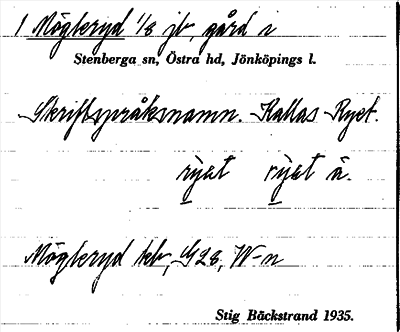 1 Mögleryd 1/8 jb, gård i
Stenberga sn, Östra hd, Jönköpings l.
Skriftspråksnamn. Kallas Ryet.
ryet ryet ä.
Mögleryd hb, G28, W-n
Stig Bäckstrand 1935.